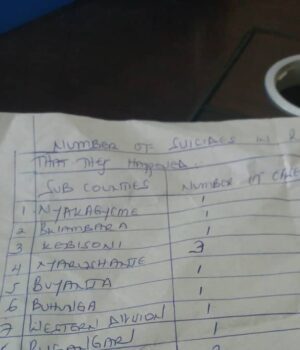 NUMBER OF SUICIDES IN 2
THAT THEY HAPPENED.
SUB COUNTIES NUMBER OF CASE
1 NYAKAGYEME 1
2 BUAMBARA 1
3 KEBISONI 3
4 NYARUSHANJE 1
5 BUYANJA 1
6 BUHUNGA 1
7 WESTERN DIVISION 1